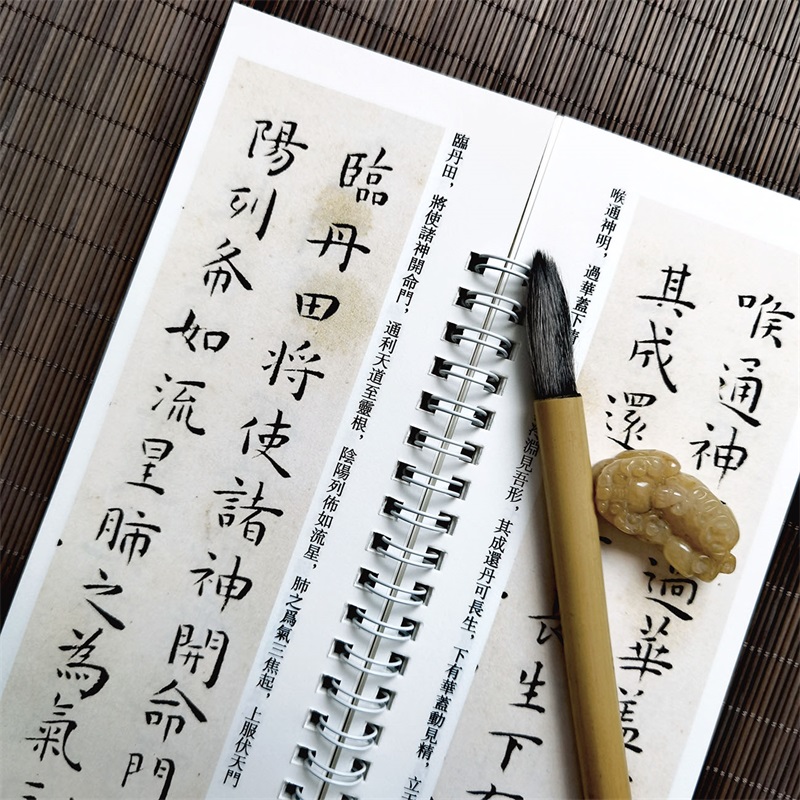 喉通神 過華蓋
其成還 長生下有
喉通神明，過華蓋下 淵見吾形，其成還丹可長生，下有華蓋動見精，立
臨丹田，將使諸神開命門，通利天道至靈根，陰陽列佈如流星，肺之爲氣三焦起，上服伏天門
臨丹田将使諸神開命門
陽列布如流星肺之為氣三